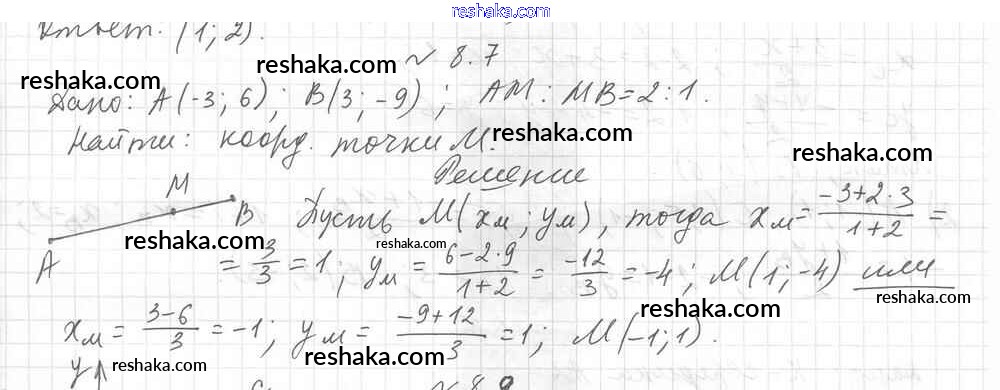 reshaka.com
Ответ. (1; 2).
№ 8.7
reshaka.com
reshaka.com
Дано: A(-3; 6); B(3; -9); AM : MB = 2 : 1.
Найти: коорд. точки M.
reshaka.com
reshaka.com
Решение
M
B
A
Пусть M(xм; yм), тогда xм = (-3+2·3)/(1+2) =
reshaka.com
reshaka.com
= 3/3 = 1; yм = (6-2·9)/(1+2) = -12/3 = -4; M(1; -4) или
reshaka.com
reshaka.com
xм = (3-6)/3 = -1; yм = (-9+12)/3 = 1; M(-1; 1).
reshaka.com
reshaka.com
y
№ 8.9